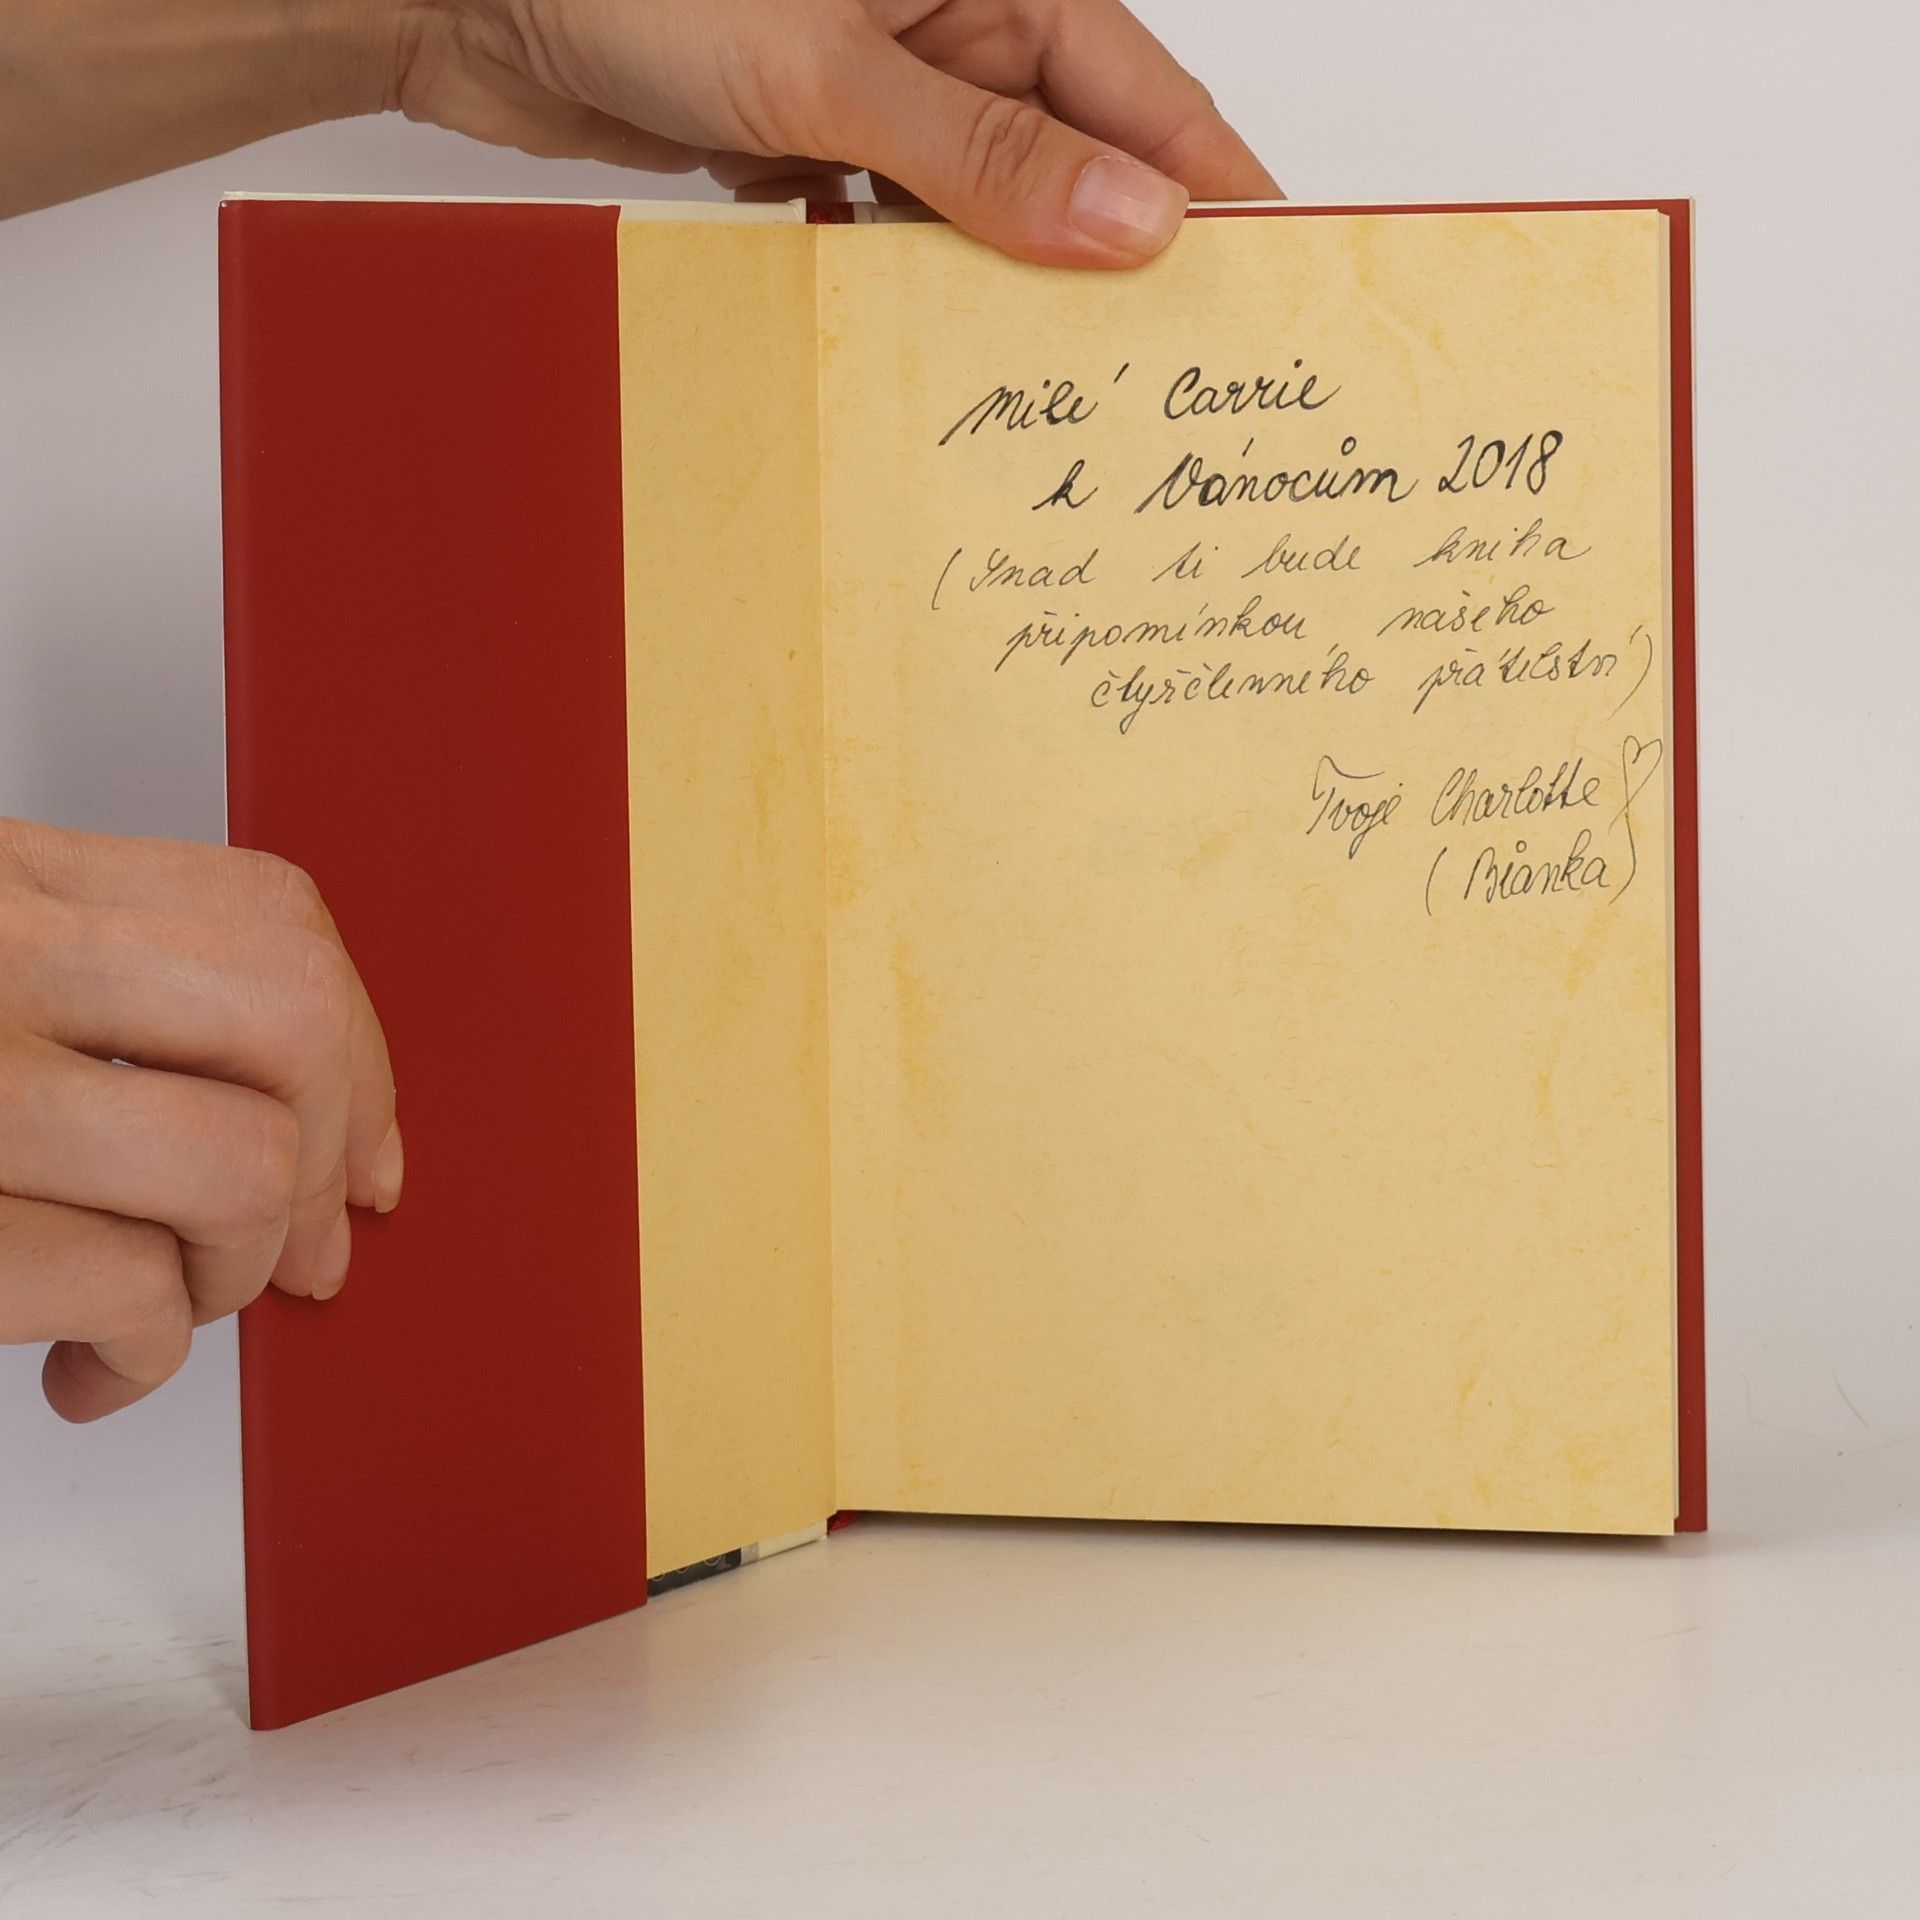 Milé Carrie
k Vánocům 2018
(Snad ti bude kniha
připomínkou našeho
čtyřčlenného přátelství)
Tvoje Charlotte
(Biånka)